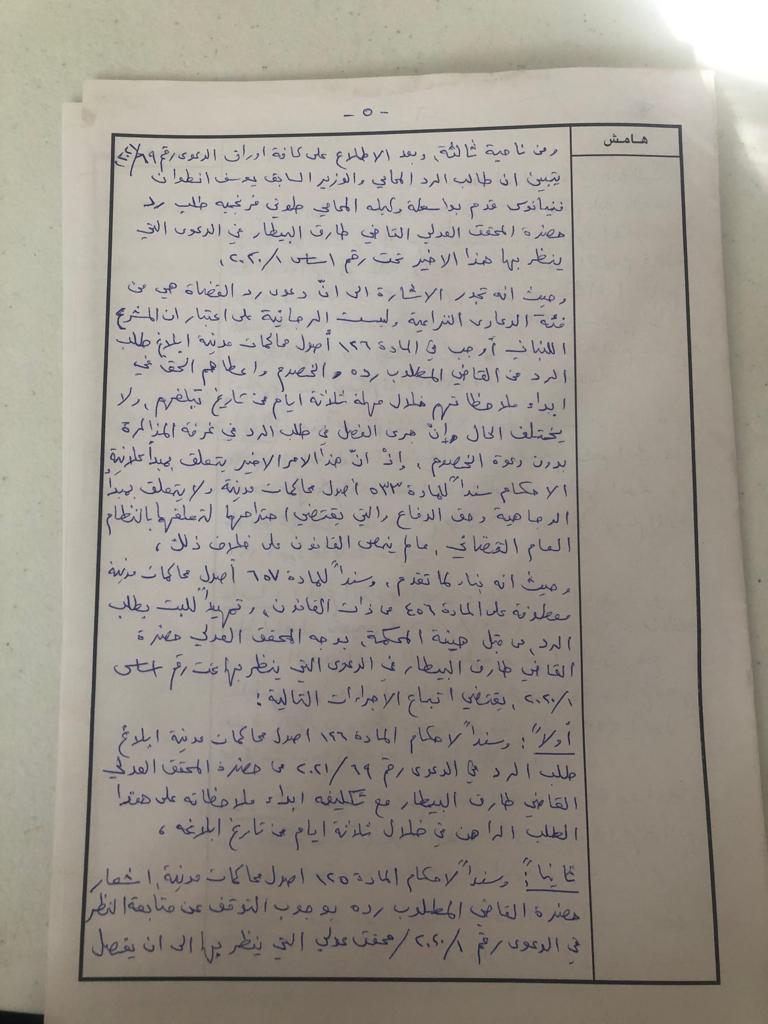 - ٥ -
هامش
ومن ناحية ثالثة، وبعد الاطلاع على كافة اوراق الدعوى رقم ٦٩/٢٠٢١
يتبين ان طالب الرد المحامي والوزير السابق يوسف انطوان
فنيانوس قدم بواسطة وكيله المحامي طوني فرنجيه طلب رد
حضرة المحقق العدلي القاضي طارق البيطار في الدعوى التي
ينظر بها هذا الاخير تحت رقم اساس ٢٠٢٠/١،
وحيث انه تجدر الاشارة الى انّ دعوى رد القضاة هي من
فئة الدعاوى النزاعية وليست الرجائية على اعتبار ان المشرع
اللبناني أوجب في المادة ١٢٦ أصول محاكمات مدنية ابلاغ طلب
الرد من القاضي المطلوب رده والخصوم واعطاهم الحق في
ابداء ملاحظاتهم خلال مهلة ثلاثة ايام من تاريخ تبلغهم، ولا
يختلف الحال وإنْ جرى الفصل في طلب الرد في غرفة المذاكرة
بدون دعوة الخصوم، إذْ انّ هذا الامر الاخير يتعلق بمبدأ علانية
الاحكام سنداً للمادة ٥٣٣ أصول محاكمات مدنية ولا يتعلق بمبدأ
الوجاهية وحق الدفاع والتي يقتضي احترامها لتعلقها بالنظام
العام القضائي، ما لم ينص القانون على خلاف ذلك،
وحيث انه بناء لما تقدم، وسنداً للمادة ٦٥٧ أصول محاكمات مدنية
معطوفة على المادة ٤٥٦ من ذات القانون، وتمهيداً للبت بطلب
الرد، من قبل هيئة المحكمة، بوجه المحقق العدلي حضرة
القاضي طارق البيطار في الدعوى التي ينظر بها تحت رقم اساس
٢٠٢٠/١، يقتضي اتباع الاجراءات التالية:
أولاً: وسنداً لاحكام المادة ١٢٦ اصول محاكمات مدنية ابلاغ
طلب الرد في الدعوى رقم ٦٩/٢٠٢١ من حضرة المحقق العدلي
القاضي طارق البيطار مع تكليفه ابداء ملاحظاته على هذا
الطلب الراهن في خلال ثلاثة ايام من تاريخ ابلاغه،
ثانياً: وسنداً لاحكام المادة ١٢٥ اصول محاكمات مدنية، اشعار
حضرة القاضي المطلوب رده بوجوب التوقف عن متابعة النظر
في الدعوى رقم ٢٠٢٠/١/محقق عدلي التي ينظر بها الى ان يفصل